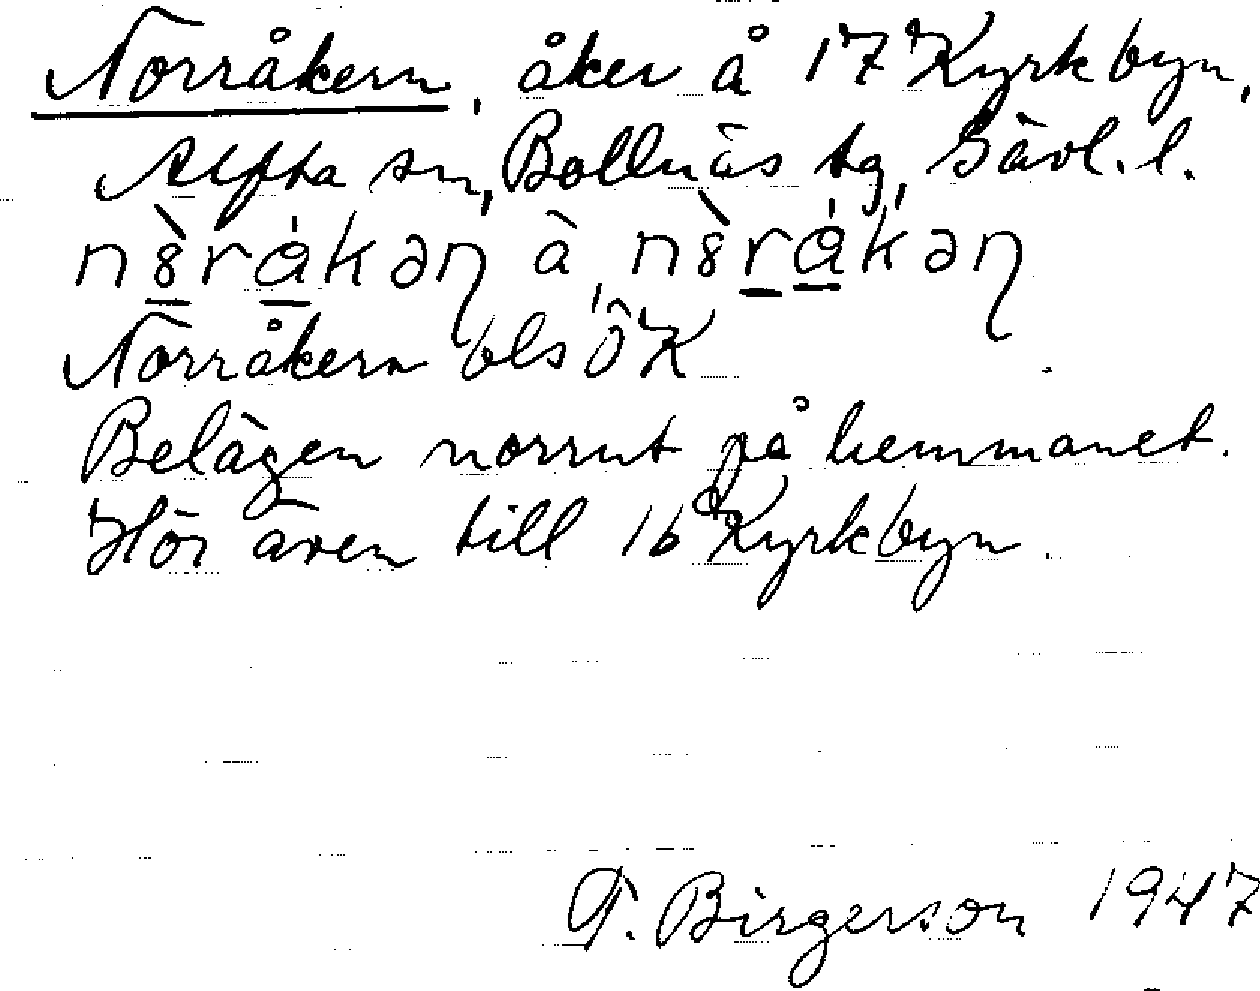 Norråkern, åker å 17 Kyrkbyn,
Alfta sn, Bollnäs tg, Gävl. l.
n8̀rákəη à n8̀rákəη
Norråkern bls ÖK
Belägen norrut på hemmanet.
Hör även till 16 Kyrkbyn.
T. Birgerson 1947